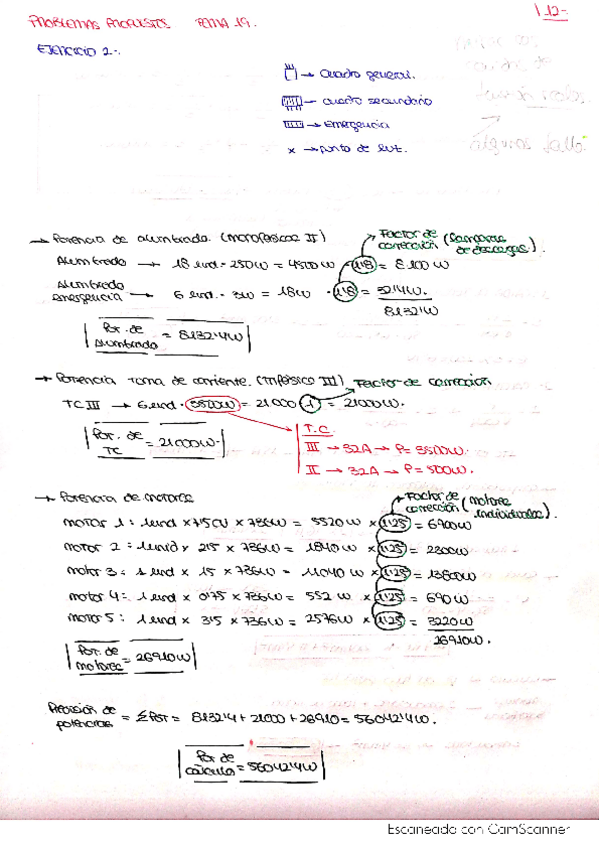 PROBLEMAS PROPUESTOS TEMA 19.
1 12-.
EJERCICIO 2-.
→ Cuadro general.
→ cuadro secundario
→ Emergencia
x → punto de luz.
→ Potencia de alumbrado. (monofásicos II)
Factor de corrección (lámparas de descarga).
Alumbrado → 18 und · 250W = 4500W · 1'8 = 8.100 W
Alumbrado emergencia → 6 und. · 3W = 18W · 1'8 = 32'4W.
8132'4W
Pot. de alumbrado = 8132'4W
→ Potencia toma de corriente. (trifásico III) Factor de corrección
TC III → 6 und · 3500W = 21000 · 1 = 21000W.
Pot. de TC = 21000W.
T.C.
III → 32A → P = 3500W.
II → 32A → P = 500W.
→ Potencia de motores
Factor de corrección (motores individuales).
motor 1 : 1 und x 7'5CV x 736W = 5520 W x 1'25 = 6900W
motor 2 : 1 unid x 2'5 x 736W = 1840W x 1'25 = 2300W
motor 3 : 1 und x 15 x 736W = 11040 W x 1'25 = 13800W
motor 4 : 1 und x 0'75 x 736W = 552 W x 1'25 = 690 W
motor 5 : 1 und x 3'5 x 736W = 2576W x 1'25 = 3220W
26910W.
Pot. de motores = 26910W
Previsión de potencias = ΣPot = 8132'4 + 21000 + 26910 = 56042'4W.
Pot de cálculo = 56042'4W
Escaneado con CamScanner